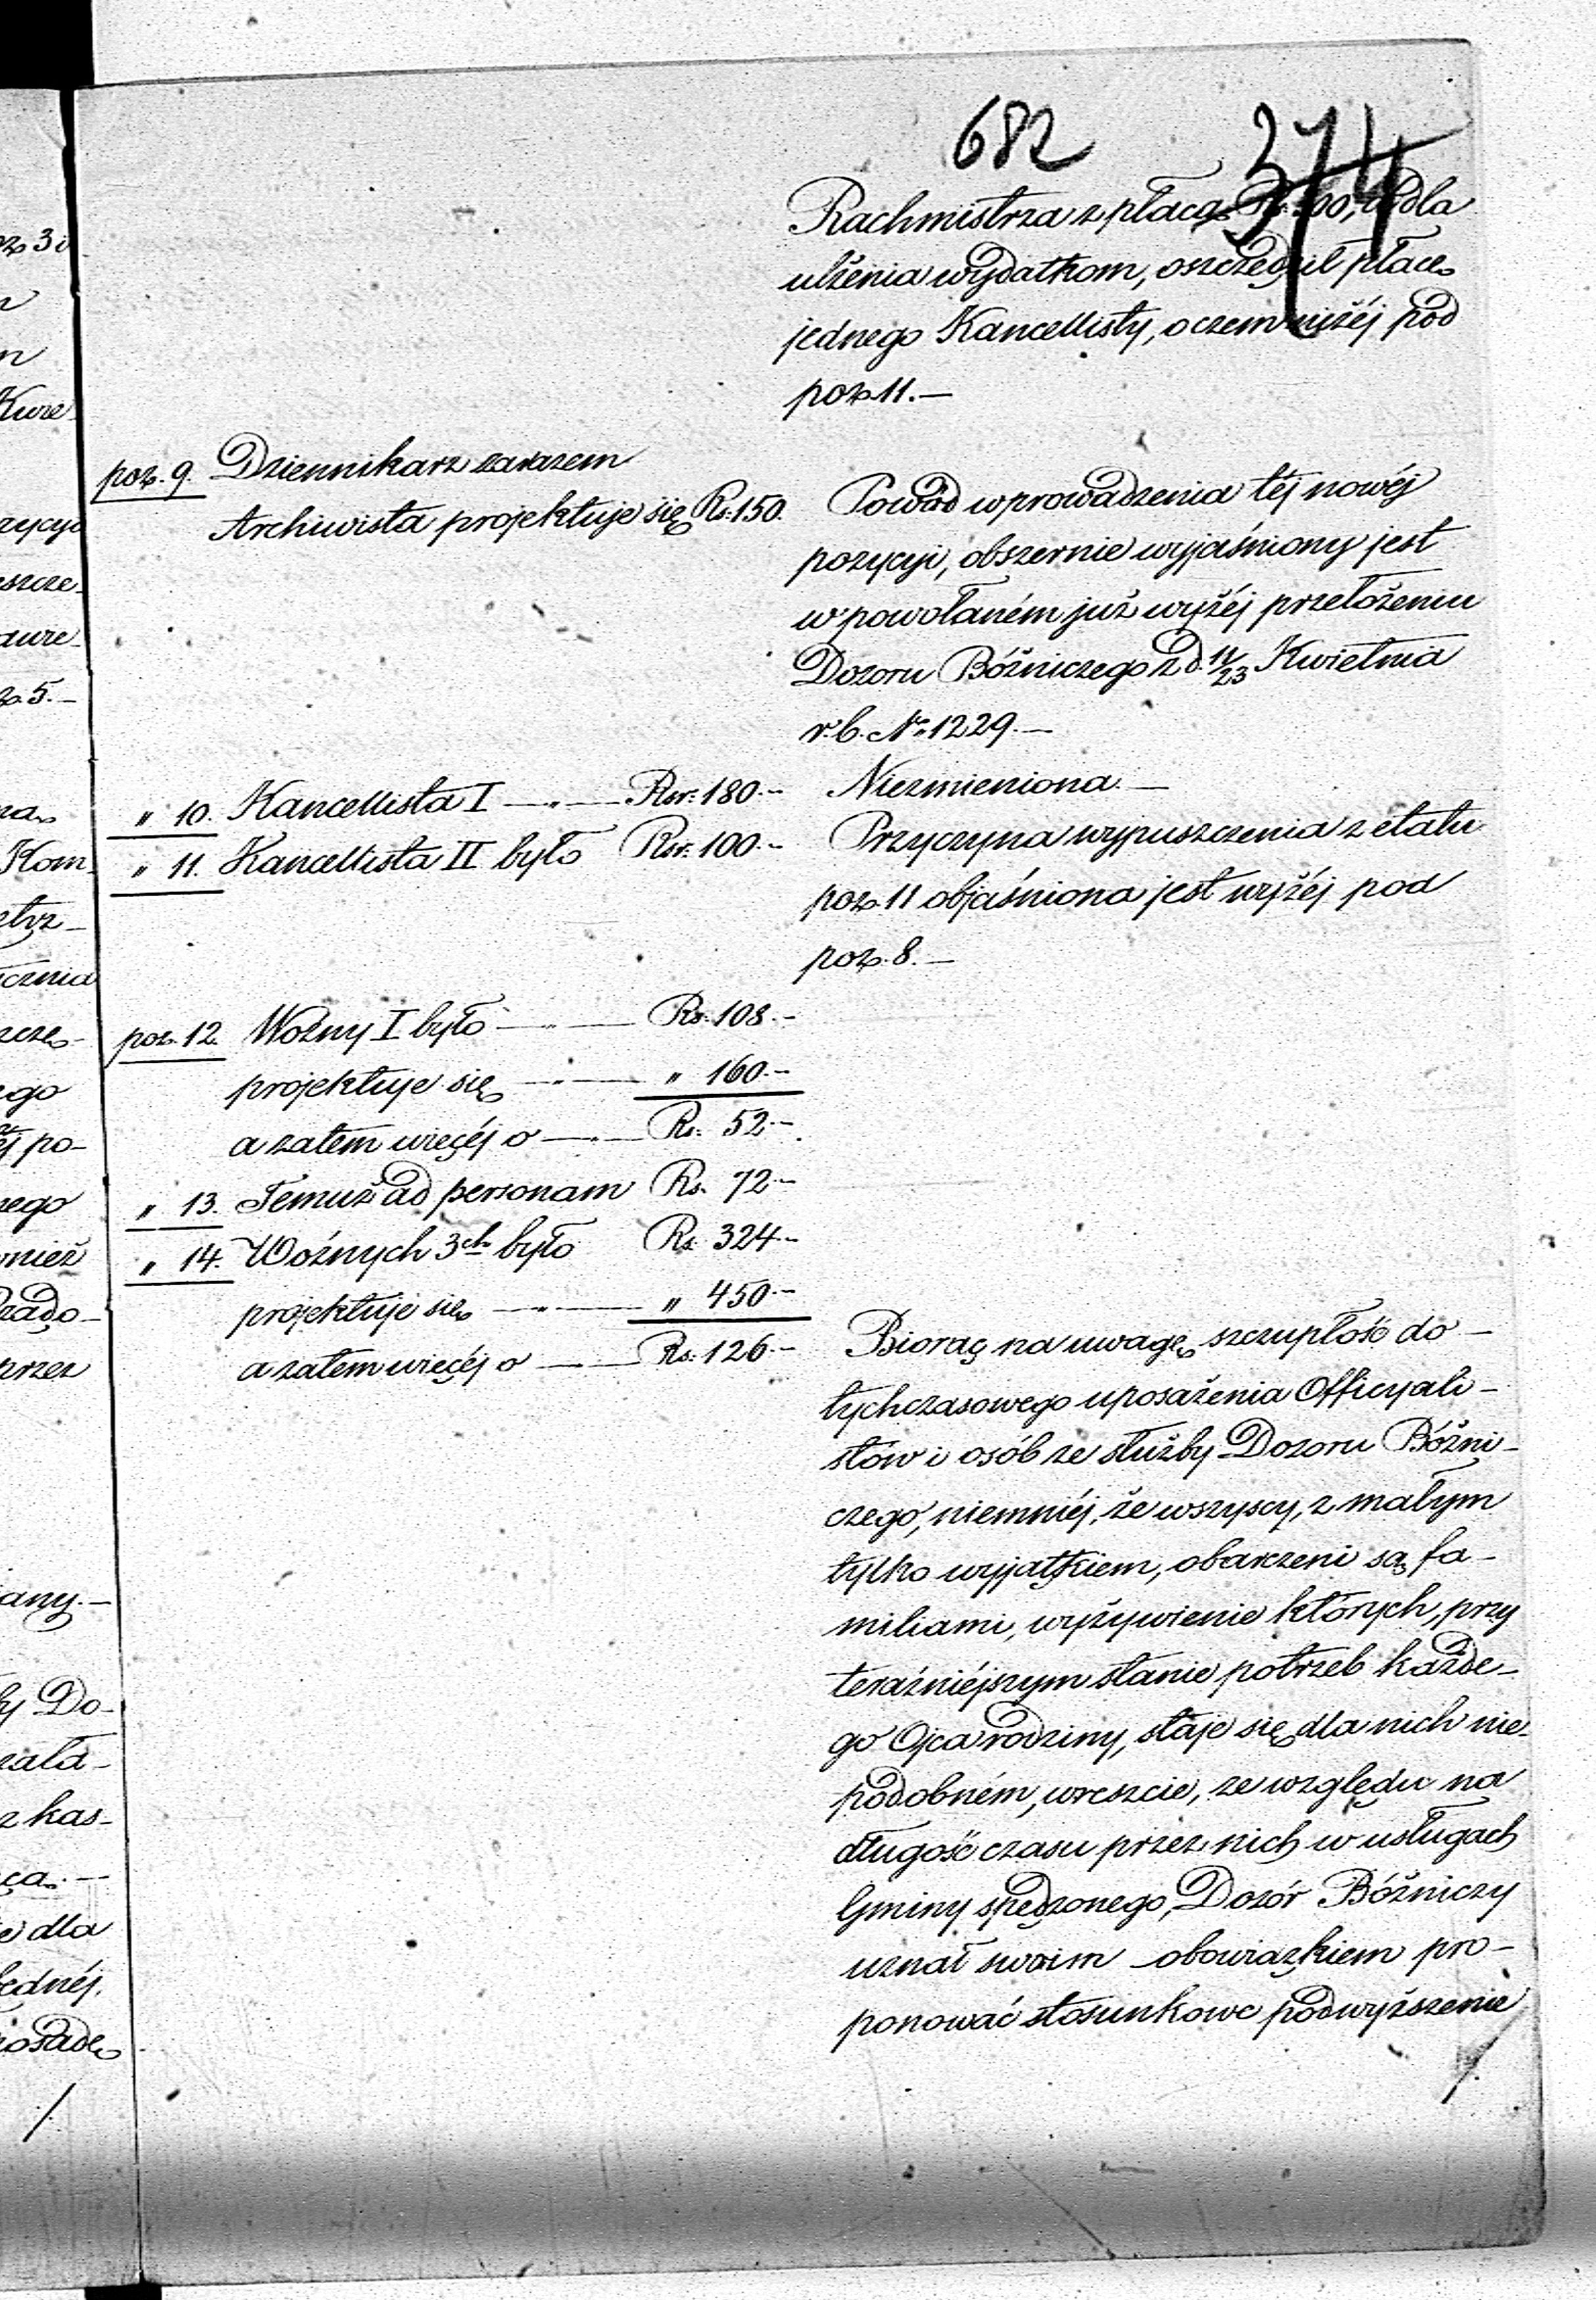 682 374
Rachmistrza z płacą Rs. 300, a dla
ulżenia wydatkom, oszczędził płacę
jednego Kancellisty, o czem niżéj pod
poz. 11.—
poz. 9. Dziennikarz zarazem
Archiwista projektuje się Rs. 150.
Powód wprowadzenia téj nowéj
pozycyi, obszernie wyjaśniony jest
w powołaném już wyżéj przełożeniu
Dozoru Bóźniczego z d. 11/23 Kwietnia
r. b. No 1229.—
" 10. Kancellista I —"— Rsr. 180.- Niezmieniona.—
" 11. Kancellista II było Rsr. 100.- Przyczyna wypuszczenia z etatu
poz. 11 objaśniona jest wyżéj pod
poz. 8.—
poz. 12. Woźny I było —"— Rs. 108.-
projektuje się —"— " 160.-
a zatem więcéj o —"— Rs. 52.-
" 13. Temuż ad personam Rs. 72.-
" 14. Woźnych 3ch było Rs. 324.-
projektuje się —"— " 450.-
a zatem więcéj o —"— Rs. 126.-
Biorąc na uwagę szczupłość do-
tychczasowego uposażenia Officyali-
stów i osób ze służby Dozoru Bóźni-
czego, niemniéj, że wszyscy, z małym
tylko wyjątkiem, obarczeni są fa-
miliami, wyżywienie których, przy
teraźniéjszym stanie potrzeb każde-
go Ojca rodziny, staje się dla nich nie-
podobném, wreszcie, ze względu na
długość czasu przez nich w usługach
Gminy spędzonego, Dozór Bóźniczy
uznał swoim obowiązkiem pro-
ponować stosunkowe podwyższenie